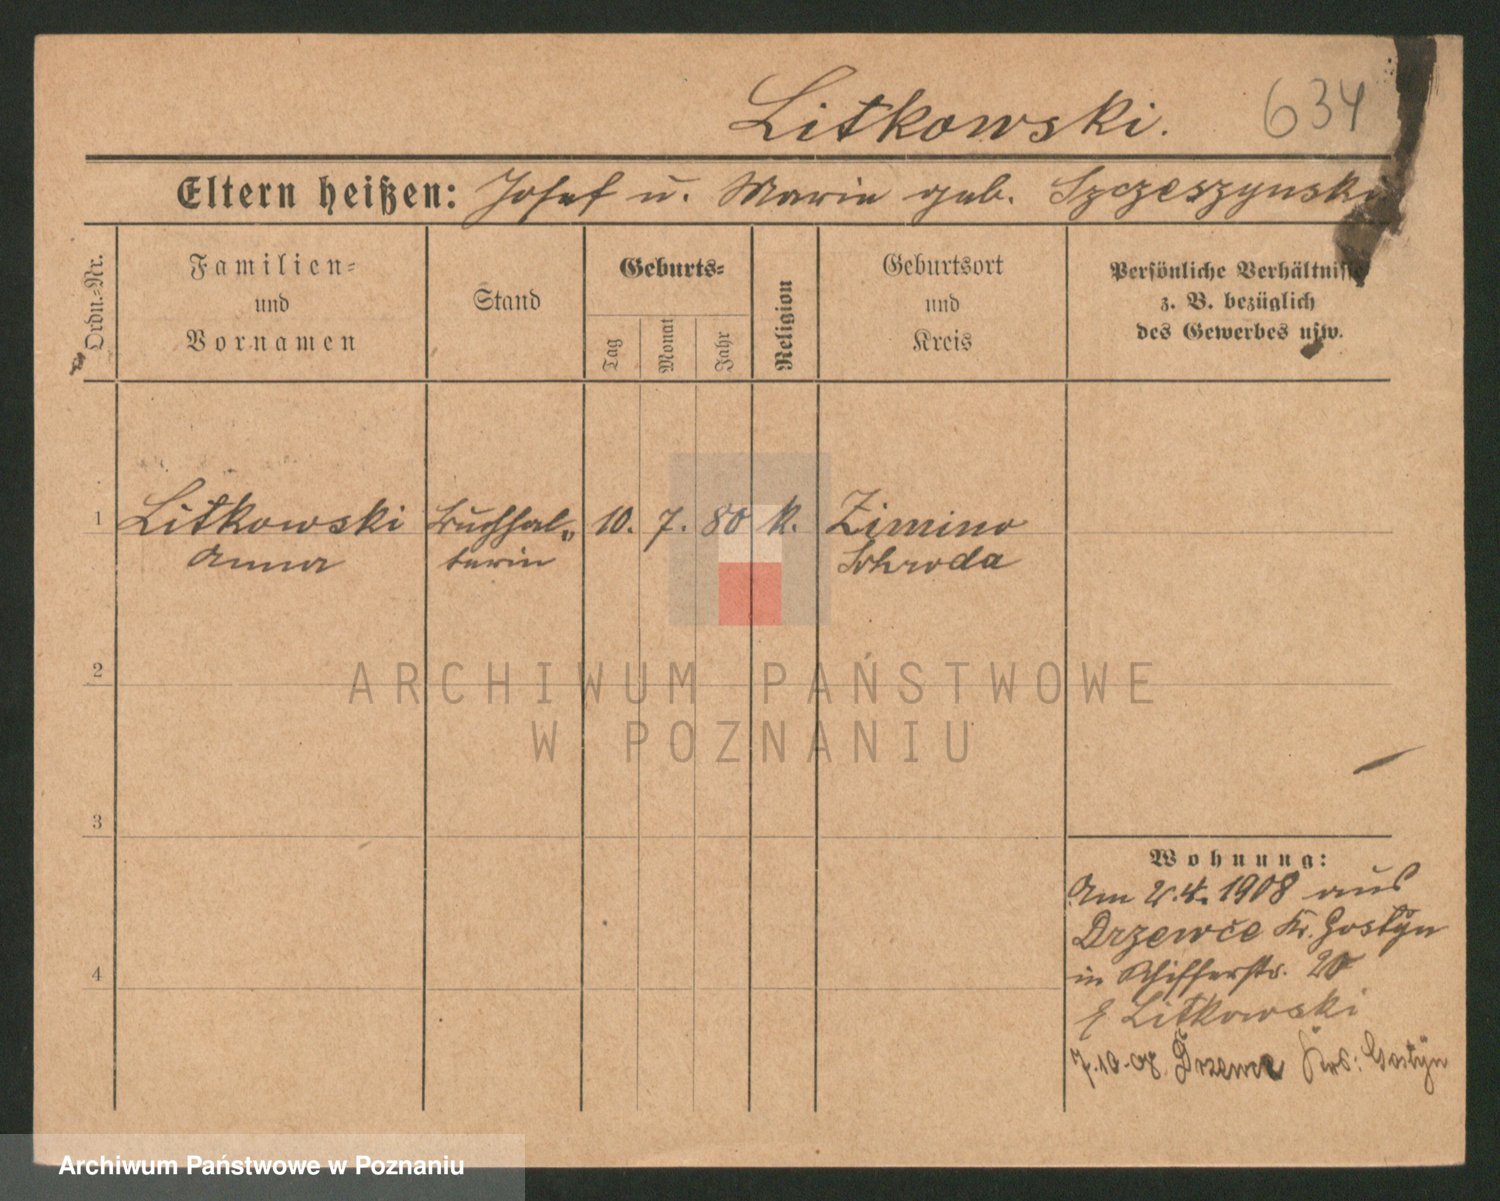 Litkowski. 634
Eltern heißen: Josef u. Marie geb. Szczeszynski
Ordn.-Nr.
Familien-
und
Vornamen
Stand
Geburts-
Tag
Monat
Jahr
Religion
Geburtsort
und
Kreis
Persönliche Verhältnisse
z. B. bezüglich
des Gewerbes usw.
1 Litkowski Buchhal- 10. 7. 80 k. Zimino
Anna terin Schroda
2
3
4
Wohnung:
Am 2.4. 1908 aus
Drzewce Kr. Gostyn
in Schifferstr. 20
Litkowski
7.10.08. Drzewce Krs: Gostyn
ARCHIWUM PAŃSTWOWE
W POZNANIU
Archiwum Państwowe w Poznaniu